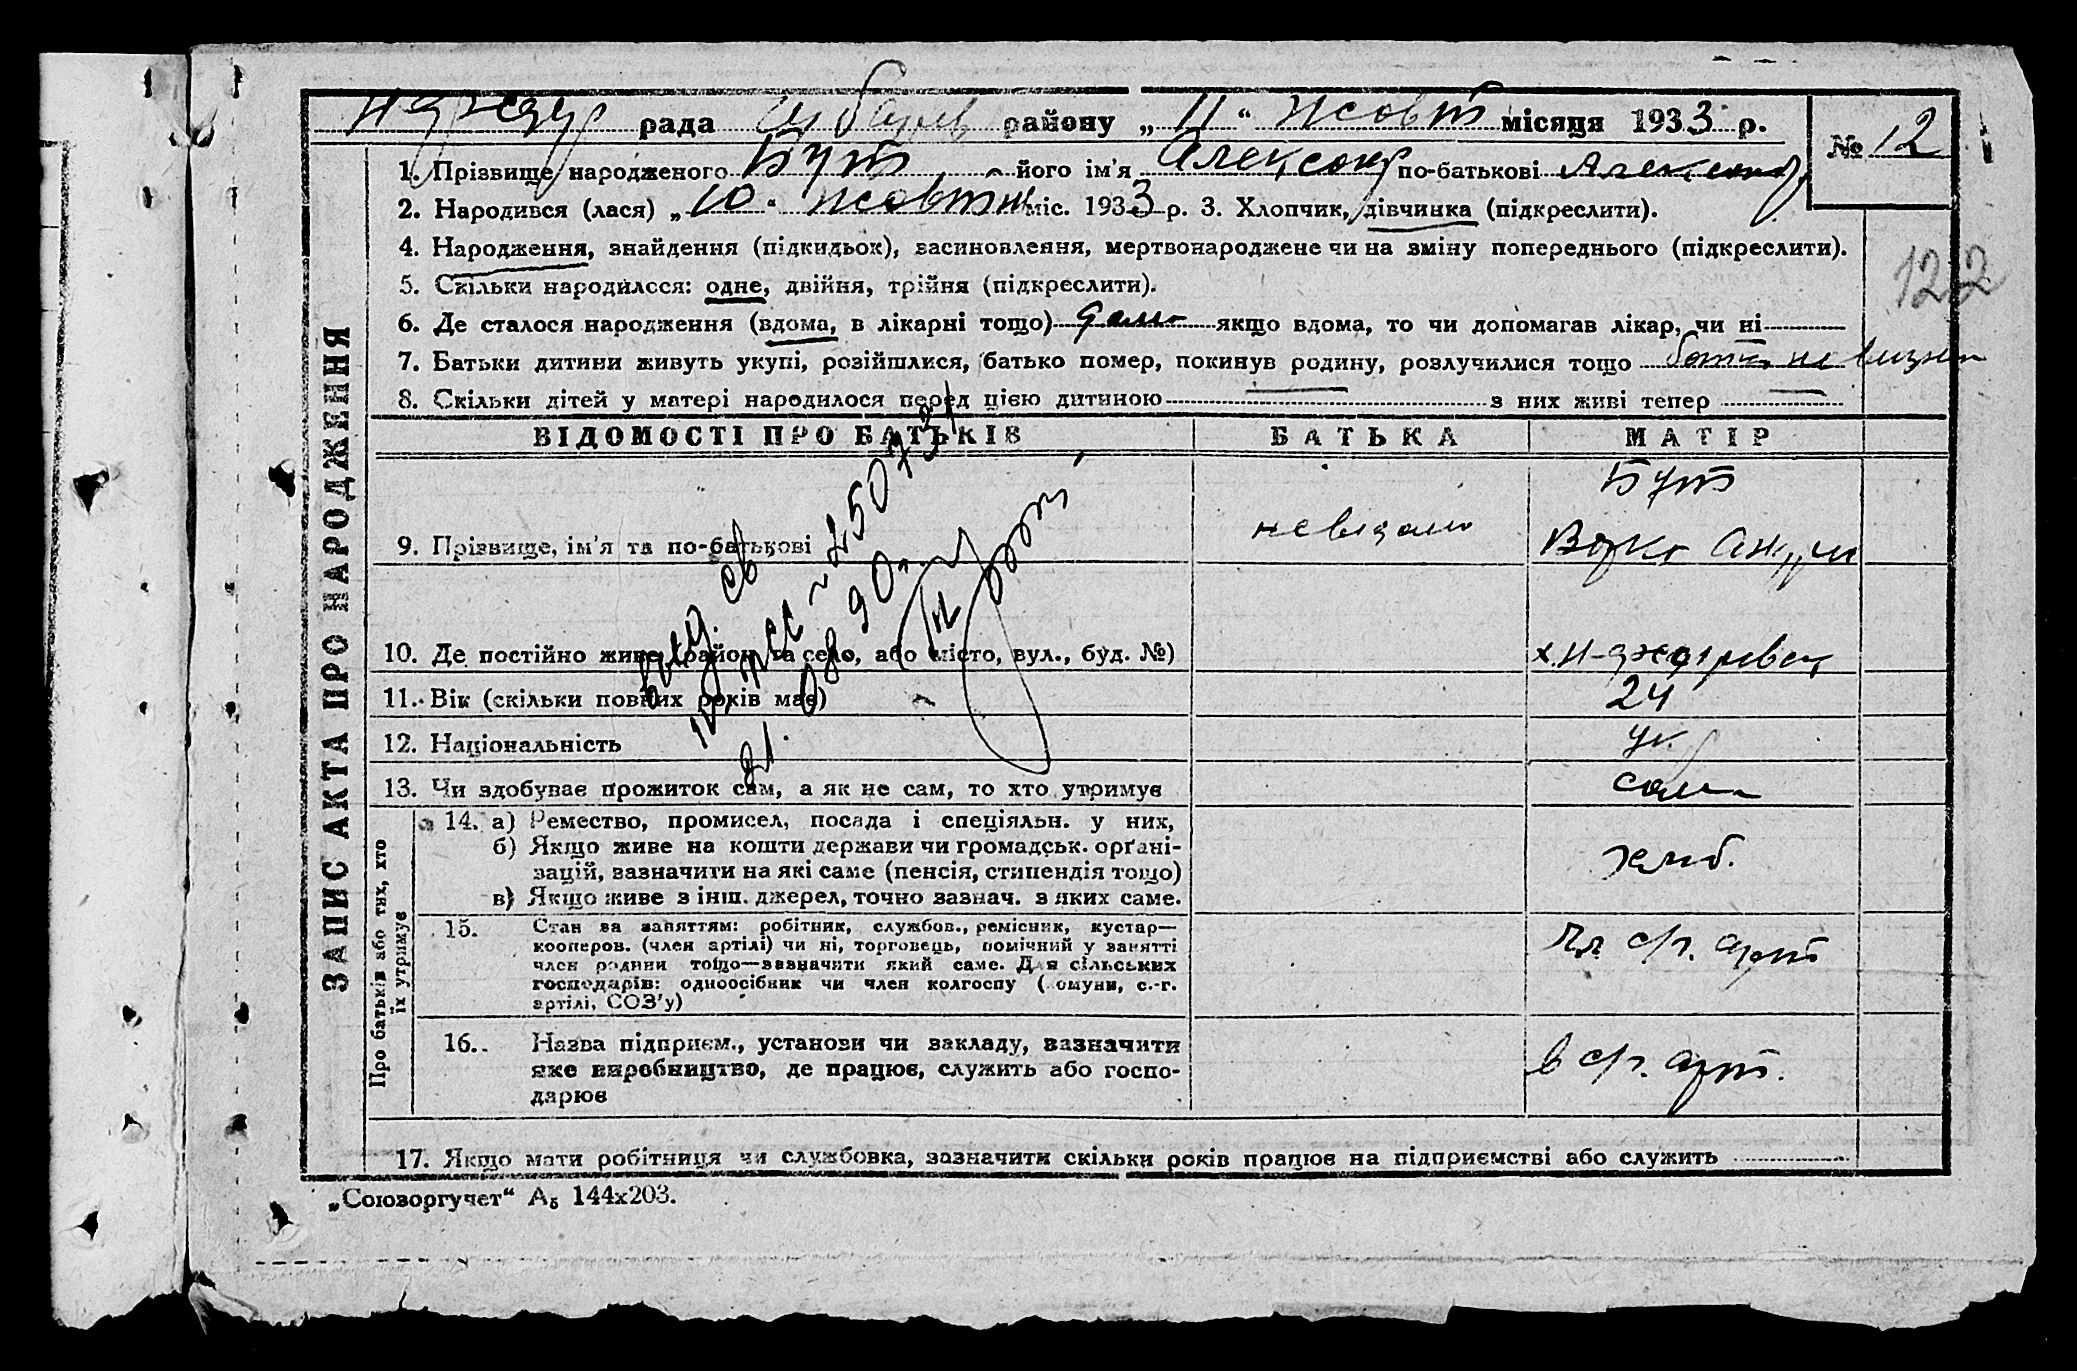 рада района „ 11 “ жовт місяця 1933 р.
№ 12
1. Прізвище народженого Бут його ім'я Александр по-батькові Александр
2. Народився (лася) „ 10 “ жовтня міс. 1933 р. 3. Хлопчик, дівчинка (підкреслити).
4. Народження, знайдення (підкидьок), засиновлення, мертвонароджене чи на зміну попереднього (підкреслити).
122
5. Скільки народилося: одне, двійня, трійня (підкреслити).
6. Де сталося народження (вдома, в лікарні тощо) дома якщо вдома, то чи допомагав лікар, чи ні
7. Батьки дитини живуть укупі, розійшлися, батько помер, покинув родину, розлучилися тощо не
8. Скільки дітей у матері народилося перед цією дитиною — з них живі тепер —
ЗАПИС АКТА ПРО НАРОДЖЕННЯ
ВІДОМОСТІ ПРО БАТЬКІВ БАТЬКА МАТІР
9. Прізвище, ім'я та по-батькові
Бут
10. Де постійно живе (район та село, або місто, вул., буд. №)
11. Вік (скільки повних років має) 24
12. Національність ук.
13. Чи здобуває прожиток сам, а як не сам, то хто утримує сама
Про батьків або тих, хто
їх утримує
14. а) Ремество, промисел, посада і спеціяльн. у них,
б) Якщо живе на кошти держави чи громадськ. орґані-
зацій, зазначити на які саме (пенсія, стипендія тощо)
в) Якщо живе з інш. джерел, точно зазнач. з яких саме.
хліб.
15. Стан за заняттям: робітник, службов., ремісник, кустар—
кооперов. (член артілі) чи ні, торговець, помічний у занятті
член родини тощо—зазначити який саме. Для сільських
господарів: одноосібник чи член колгоспу (комуни, с.-г.
артілі, СОЗ'у)
чл. с/г. арт
16. Назва підприєм., установи чи закладу, зазначити
яке виробництво, де працює, служить або госпо-
дарює
в с/г. арт.
17. Якщо мати робітниця чи службовка, зазначити скільки років працює на підприємстві або служить
„Союзоргучет“ А5 144х203.